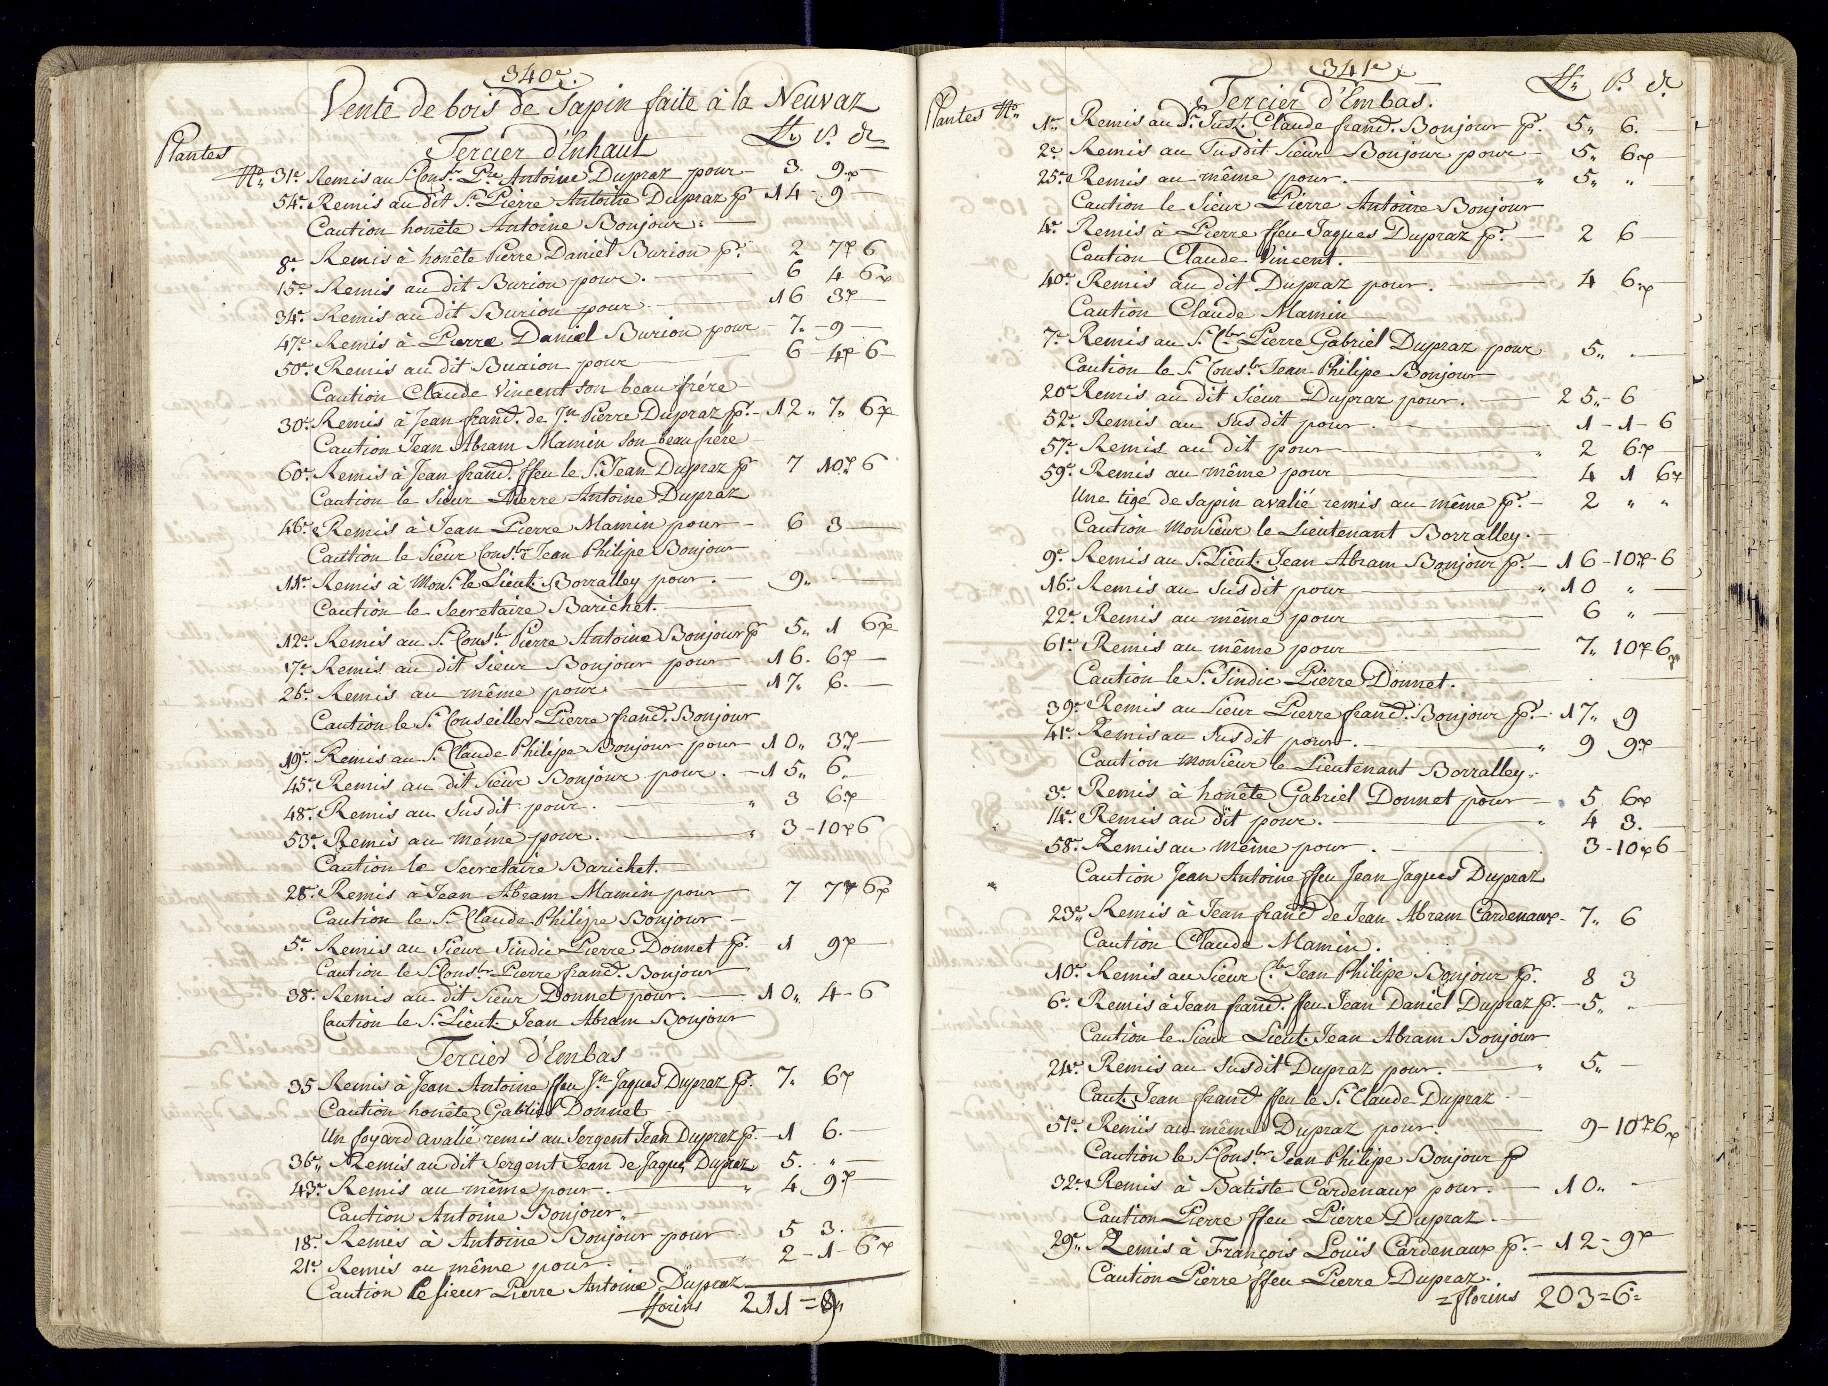 340e.
Vente de bois de Sapin faite à la Neuvaz
Plantes
Tercier d'Enhaut ff. ß. dr.
No. 31e Remis au Sr Consr. Pre Antoine Dupraz pour 3. 9
54e Remis au dit Sr. Pierre Antoine Dupraz p 14 - 9
Caution honête Antoine Bonjour.
8e Remis à honête Pierre Daniel Burion pr. 2 7 6
15e Remis au dit Burion pour. 6 4 6
34e Remis au dit Burion pour 16 3
47e Remis à Pierre Daniel Burion pour 7. - 9
50e Remis au dit Buaion pour 6 - 4 6
Caution Claude Vincent son beau frére
30e Remis à Jean franc. de Jn Pierre Dupraz p. - 12 " 7 " 6
Caution Jean Abram Mamin son beau frére
60e Remis à Jean franc. ffeu le Sr Jean Dupraz p 7 10 6
Caution le Sieur Pierre Antoine Dupraz
46e Remis à Jean Pierre Mamin pour - 6 3
Caution le Sieur Const. Jean Philipe Bonjour
11e Remis à Monsr. le Lieut. Borralley pour. 9 "
Caution le Secretaire Barichet.
12e Remis au Sr. Const Pierre Antoine Bonjour p 5 " 1 6
17e Remis au dit Sieur Bonjour pour 16. 6
26e Remis au même pour 17 " 6.
Caution le Sr. Conseiller Pierre franc. Bonjour
19e Remis au Sr. Claude Philipe Bonjour pour 10 " 3
45e Remis au dit Sieur Bonjour pour. - 15 " 6.
48e Remis au Susdit pour. " 3 6
53e Remis au même pour. " 3 - 10 6
Caution le Secretaire Barichet.
28e Remis à Jean Abram Mamin pour 7 7 6
Caution le Sr Claude Philipe Bonjour
5e Remis au Sieur Sindic Pierre Donnet p. - 1 9
Caution le Sr Const. Pierre franc. Bonjour
38e Remis au dit Sieur Donnet pour. 10 " 4 - 6
Caution le Sr. Lieut. Jean Abram Bonjour
Tercier d'Embas
35 Remis à Jean Antoine ffeu Jn Jaques Dupraz p. 7 " 6
Caution honête Gabriel Donnet
Un foyard avalié remis au Sergent Jean Dupraz p. - 1 6.
36e Remis au dit Sergent Jean de Jaques Dupraz 5. "
43e Remis au même pour. " 4 9
Caution Antoine Bonjour
18e Remis à Antoine Bonjour pour 5 3.
21e Remis au même pour. " 2 - 1 - 6
Caution le sieur Pierre Antoine Dupraz
florins 211 = 9
341e
Tercier d'Embas. ff. ß. dr.
Plantes No.
1e Remis au Sr. Just. Claude franc. Bonjour p. 5 " 6.
2e Remis au Susdit Sieur Bonjour pour 5 " 6
25e Remis au même pour. " 5 " "
Caution le Sieur Pierre Antoine Bonjour
4e Remis à Pierre ffeu Jaques Dupraz p. 2 6
Caution Claude Vincent.
40e Remis au dit Dupraz pour. 4 6
Caution Claude Mamin
7e Remis au Sr. Cler Pierre Gabriel Dupraz pour 5 " .
Caution le Sr Const Jean Philipe Bonjour
20e Remis au dit Sieur Dupraz pour. 25 " - 6
52e Remis au Susdit pour. 1 - 1 - 6
57e Remis au dit pour " 2 6
59e Remis au même pour 4 1 6
Une tige de sapin avalié remis au même p. - 2 " "
Caution Monsieur le Lieutenant Borralley.
9e Remis au Sr. Lieut. Jean Abram Bonjour p. - 16 - 10 - 6
16e Remis au Susdit pour " 10 "
22e Remis au même pour 6 "
61e Remis au même pour 7 " 10 6
Caution le Sr. Sindic Pierre Donnet.
39e Remis au Sieur Pierre franc. Bonjour p. - 17 " 9
41e Remis au Susdit pour. " 9 9
Caution Monsieur le Lieutenant Borralley.
3e Remis à honête Gabriel Donnet pour 5 6
14e Remis au dit pour. " 4 3.
58e Remis au même pour. 3 - 10 6
Caution Jean Antoine ffeu Jean Jaques Dupraz
23e Remis à Jean franc de Jean Abram Cardenaux - 7 " 6
Caution Claude Mamin.
10e Remis au Sieur Cler Jean Philipe Bonjour p. 8 3
6e Remis à Jean franc. ffeu Jean Daniel Dupraz p. - 5 " .
Caution le Sieur Lieut. Jean Abram Bonjour
24e Remis au Susdit Dupraz pour. " 5 "
Caut. Jean franc ffeu le Sr Claude Dupraz
51e Remis au même Dupraz pour. 9 - 10 6
Caution le Sr Const Jean Philipe Bonjour p
32e Remis à Batiste Cardenaux pour. 10 "
Caution Pierre ffeu Pierre Dupraz
29e Remis à François Louïs Cardenaux p. - 12 - 9
Caution Pierre ffeu Pierre Dupraz.
= florins 203 = 6 =